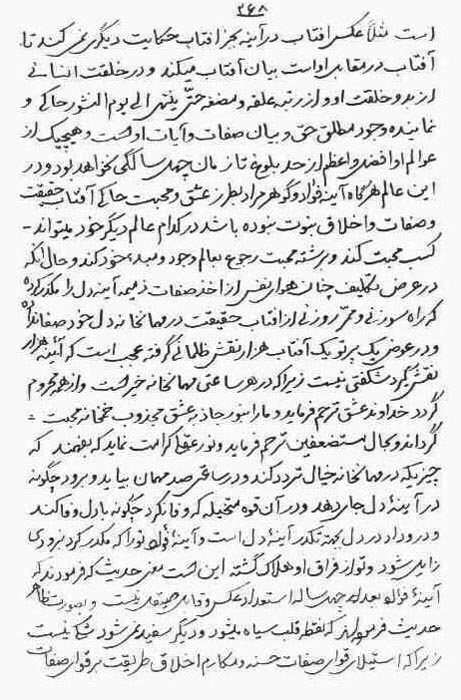 ۳۶۸
است مثلاً عکس آفتاب در آینه بجز آفتاب حکایت دیگری نمی کند تا
آفتاب در مقابل او است بیان آفتاب میکند و در خلقت انسانی
از بدو خلقت او و از رتبه علقه و مضغه حتّی ینتهی الی یوم النشور حاکی و
نماینده وجود مطلق حق و بیان صفات و آیات اوست و هیچیک از
عوالم او افضل و اعظم از حد بلوغ تا زمان چهل سالگی نخواهد بود و در
این عالم هرگاه آینه فؤاد و گوهر مراد بطرز عشق و محبت حاکی آفتاب حقیقت
و صفات و اخلاق نبوت نبوده باشد در کدام عالم دیگر خود میتواند
کسب محبت کند و برشته محبت رجوع بعالم وجود و مبدء خود کند و حال آنکه
در عرض تکلیف چنان هوای نفس از اخذ صفات ذمیمه آینه دل را مکدر کرده
که راه سوزنی و ممرّ روزنی از آفتاب حقیقت در مهمانخانه دل خود صفا نداده
و در عوض یک پرتو یک آفتاب هزار نقش ظلمانی گرفته عجب است که آئینه هزار
نقش گیرد شگفتی نیست زیرا که در هر ساعتی مهمانخانه خیر است و از همه محروم
گردد خداوند عشق ترحم فرماید و ما را بنور جاذبه عشق مجذوب خمخانه محبت
گرداند و بحال مستضعفین ترحم فرماید و نور عقل کرامت نماید که بفهمند که
چیزیکه در مهمانخانه خیال تردد کند و در ساعتی صد مهمان بیاید و برود چگونه
در آینهٔ دل جای دهد و در آن قوه متخیله که وفا نکرد چگونه با دل وفا کند
و در وداد در دل بجهة تکدر آینهٔ دل است و آینهٔ فؤاد تو را که مکدر کرد بزودی
زایل شود و تو از فراق او هلاک گشته این است معنی حدیث که فرمودند که
آئینهٔ فؤاد بعد از چهل ساله استعداد عکس و قابل صیقل نیست و بصورت ظاهر
حدیث فرموده اند که نقطه قلب سیاه میشود و دیگر سفید نمی شود شکی نیست
زیرا که استیلای قوای صفات حسنه و مکارم اخلاق طریقت بر قوای صفات